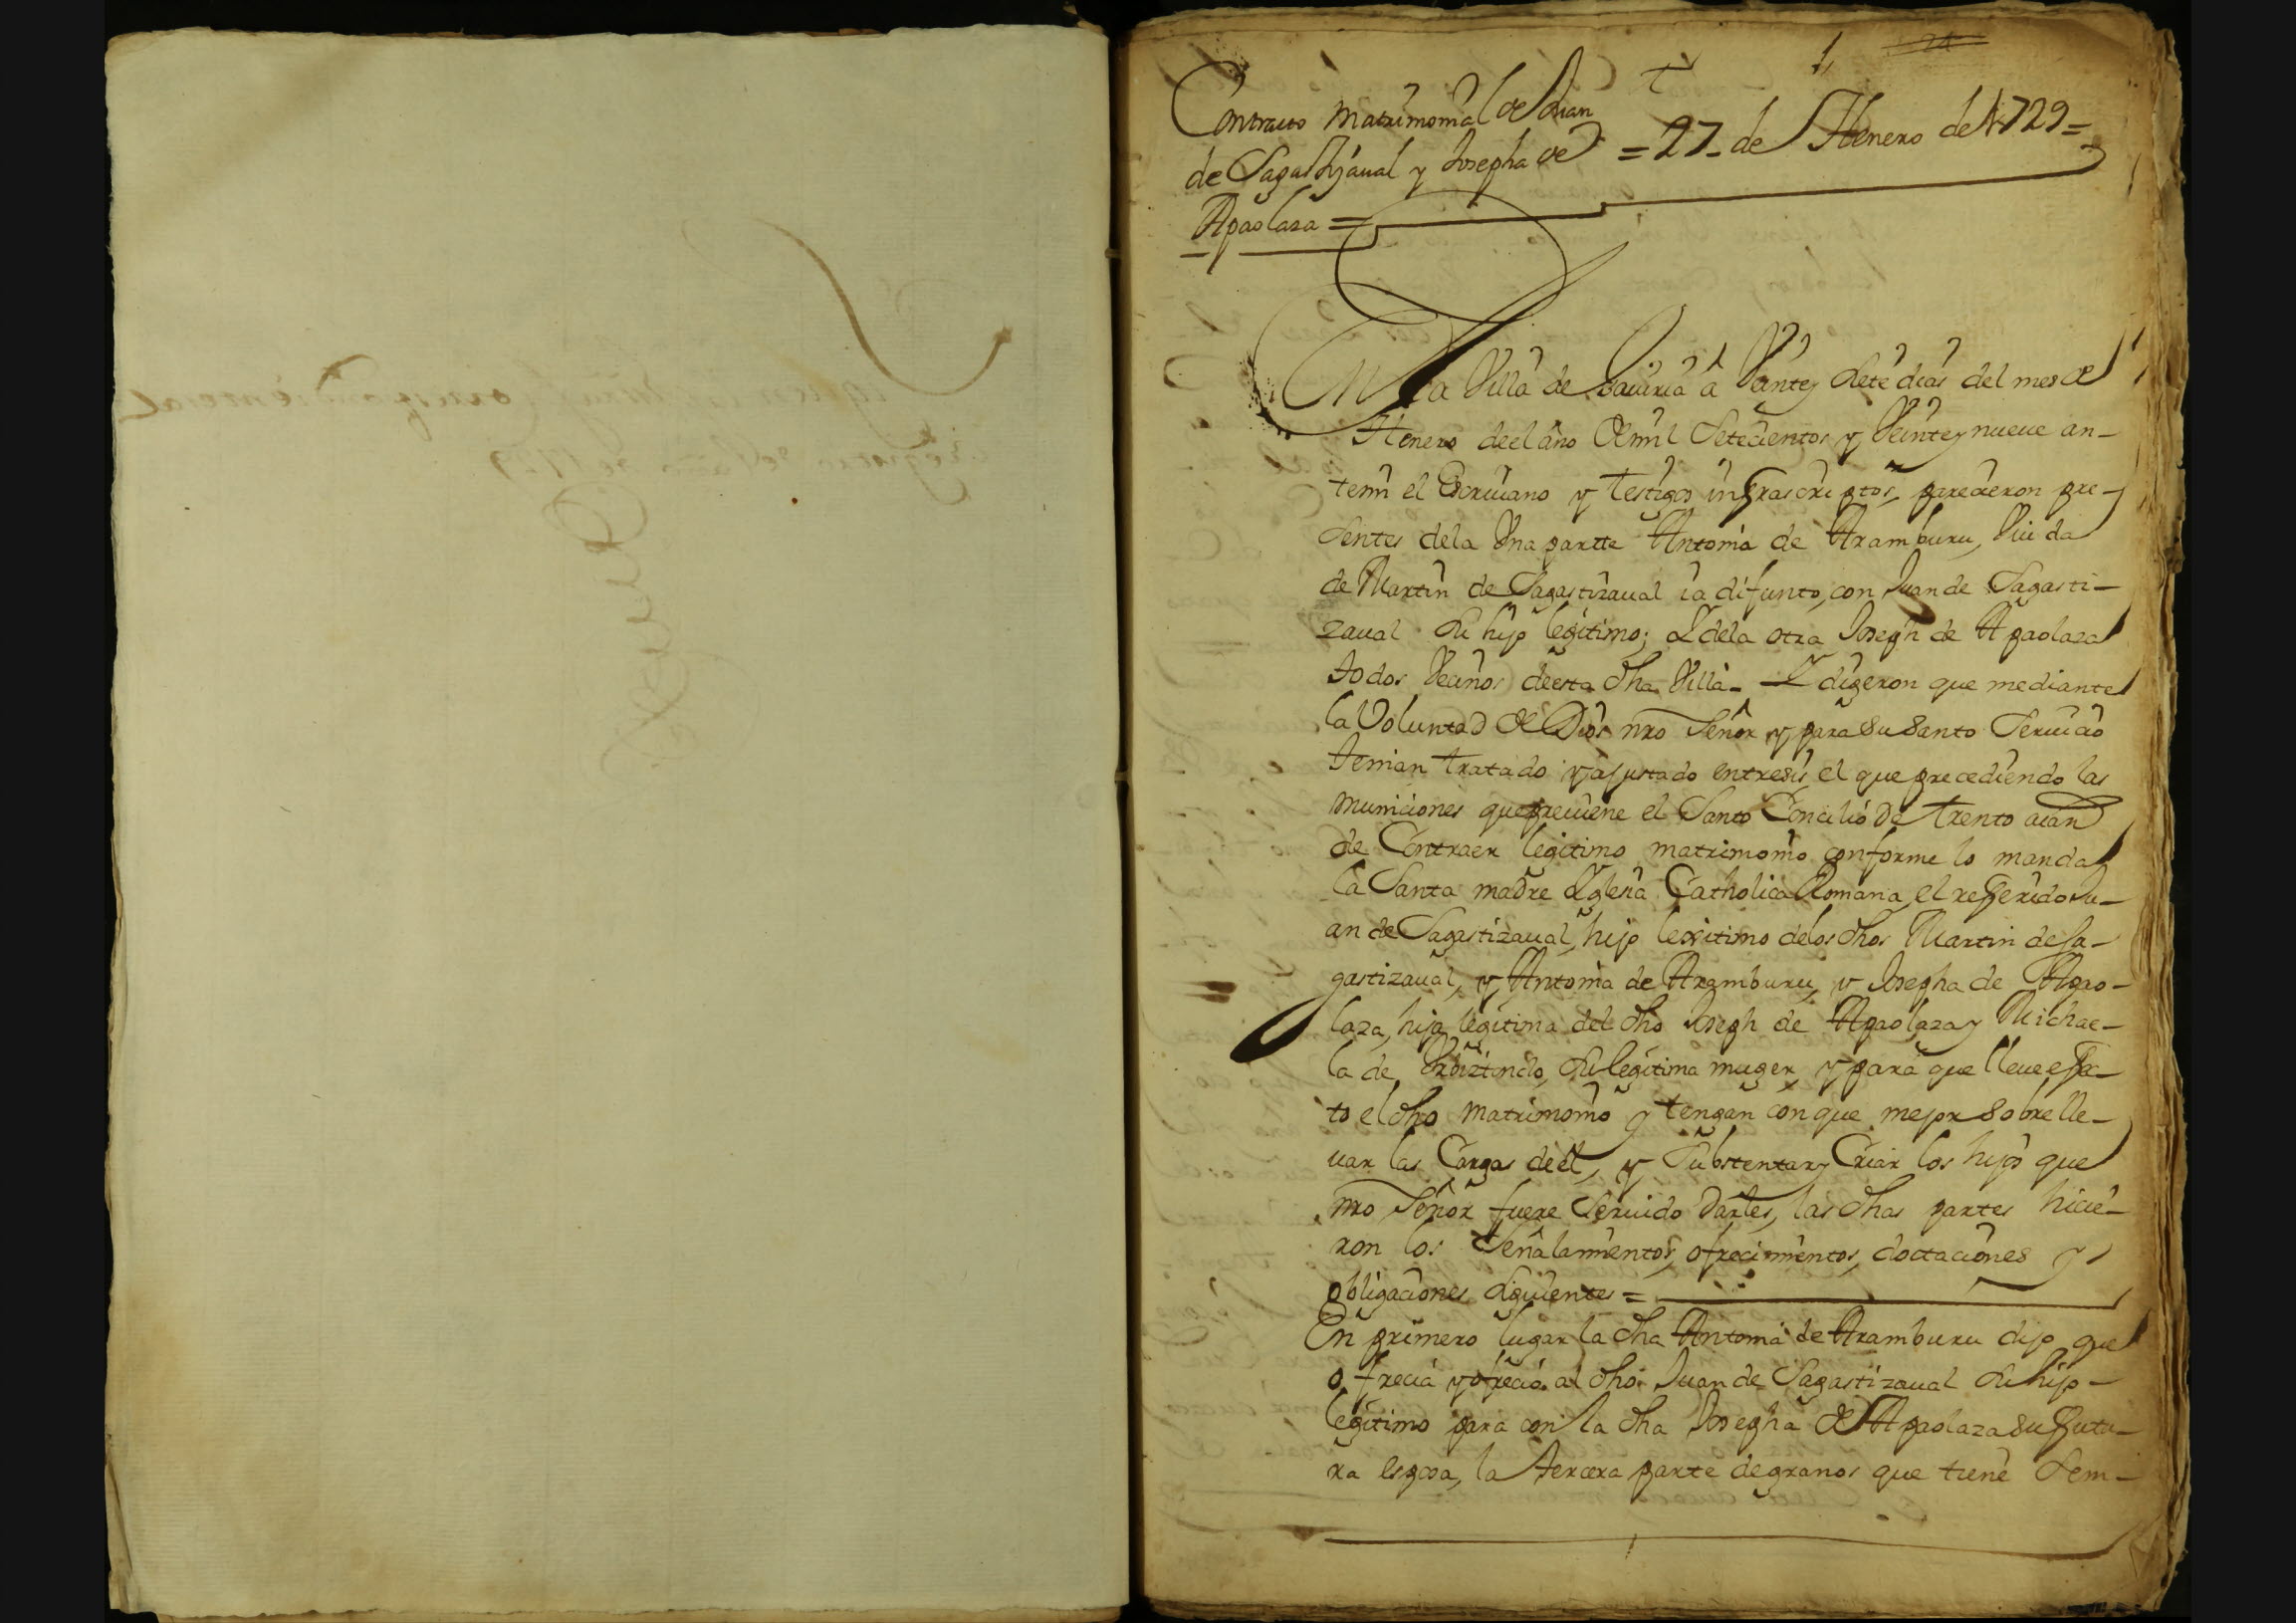 1
24
Contracto Matrimonial de Juan
de Sagastizaval y Josepha de
Apaolaza =
= 27 de Henero de 1729 =
En la Villa de Seguria a Veinte y siete dias del mes de
Henero deel año de mil Setecientos y Veinte y nueve an-
temi el Escrivano y testigos infrascriptos, parecieron pre-
sentes dela Una partte Antonia de Aramburu, Viuda
de Martin de Sagastizaval ia difunto, con Juan de Sagasti-
zaval su hijo legitimo; Y dela otra Joseph de Apaolaza
todos Vecinos deesta dha Villa - Y digeron que mediante
la Voluntad de Dios nro Señor y para su Santo Servicio
tenian tratado y ajustado entresi el que precediendo las
municiones que previene el Santo Concilio De Trento aian
de Contraer legitimo matrimonio conforme lo manda
la Santa madre Yglesia Catholica Romana, el referido Ju-
an de Sagastizaval, hijo lexitimo delos dhos Martin de Sa-
gastizaval, y Antonia de Aramburu, y Josepha de Apao-
laza, hija legitima del dho Joseph de Apaolaza y Michae-
la de su legitima muger, y para que lleve efec-
to el dho Matrimonio y tengan conque mejor sobrelle-
var las Cargas deel, y Substentar y Criar los hijos que
nro Señor fuere Servido Darles, las dhas partes hicie-
ron los Señalamientos, ofrecimientos, doctaciones y
obligaciones siguientes =
En primero lugar la dha Antonia de Aramburu dijo que
ofrecia y ofrecio al dho Juan de Sagastizaval su hijo -
legitimo para con la dha Josepha de Apaolaza su futu-
ra esposa, la tercera parte de granos que tiene sem-